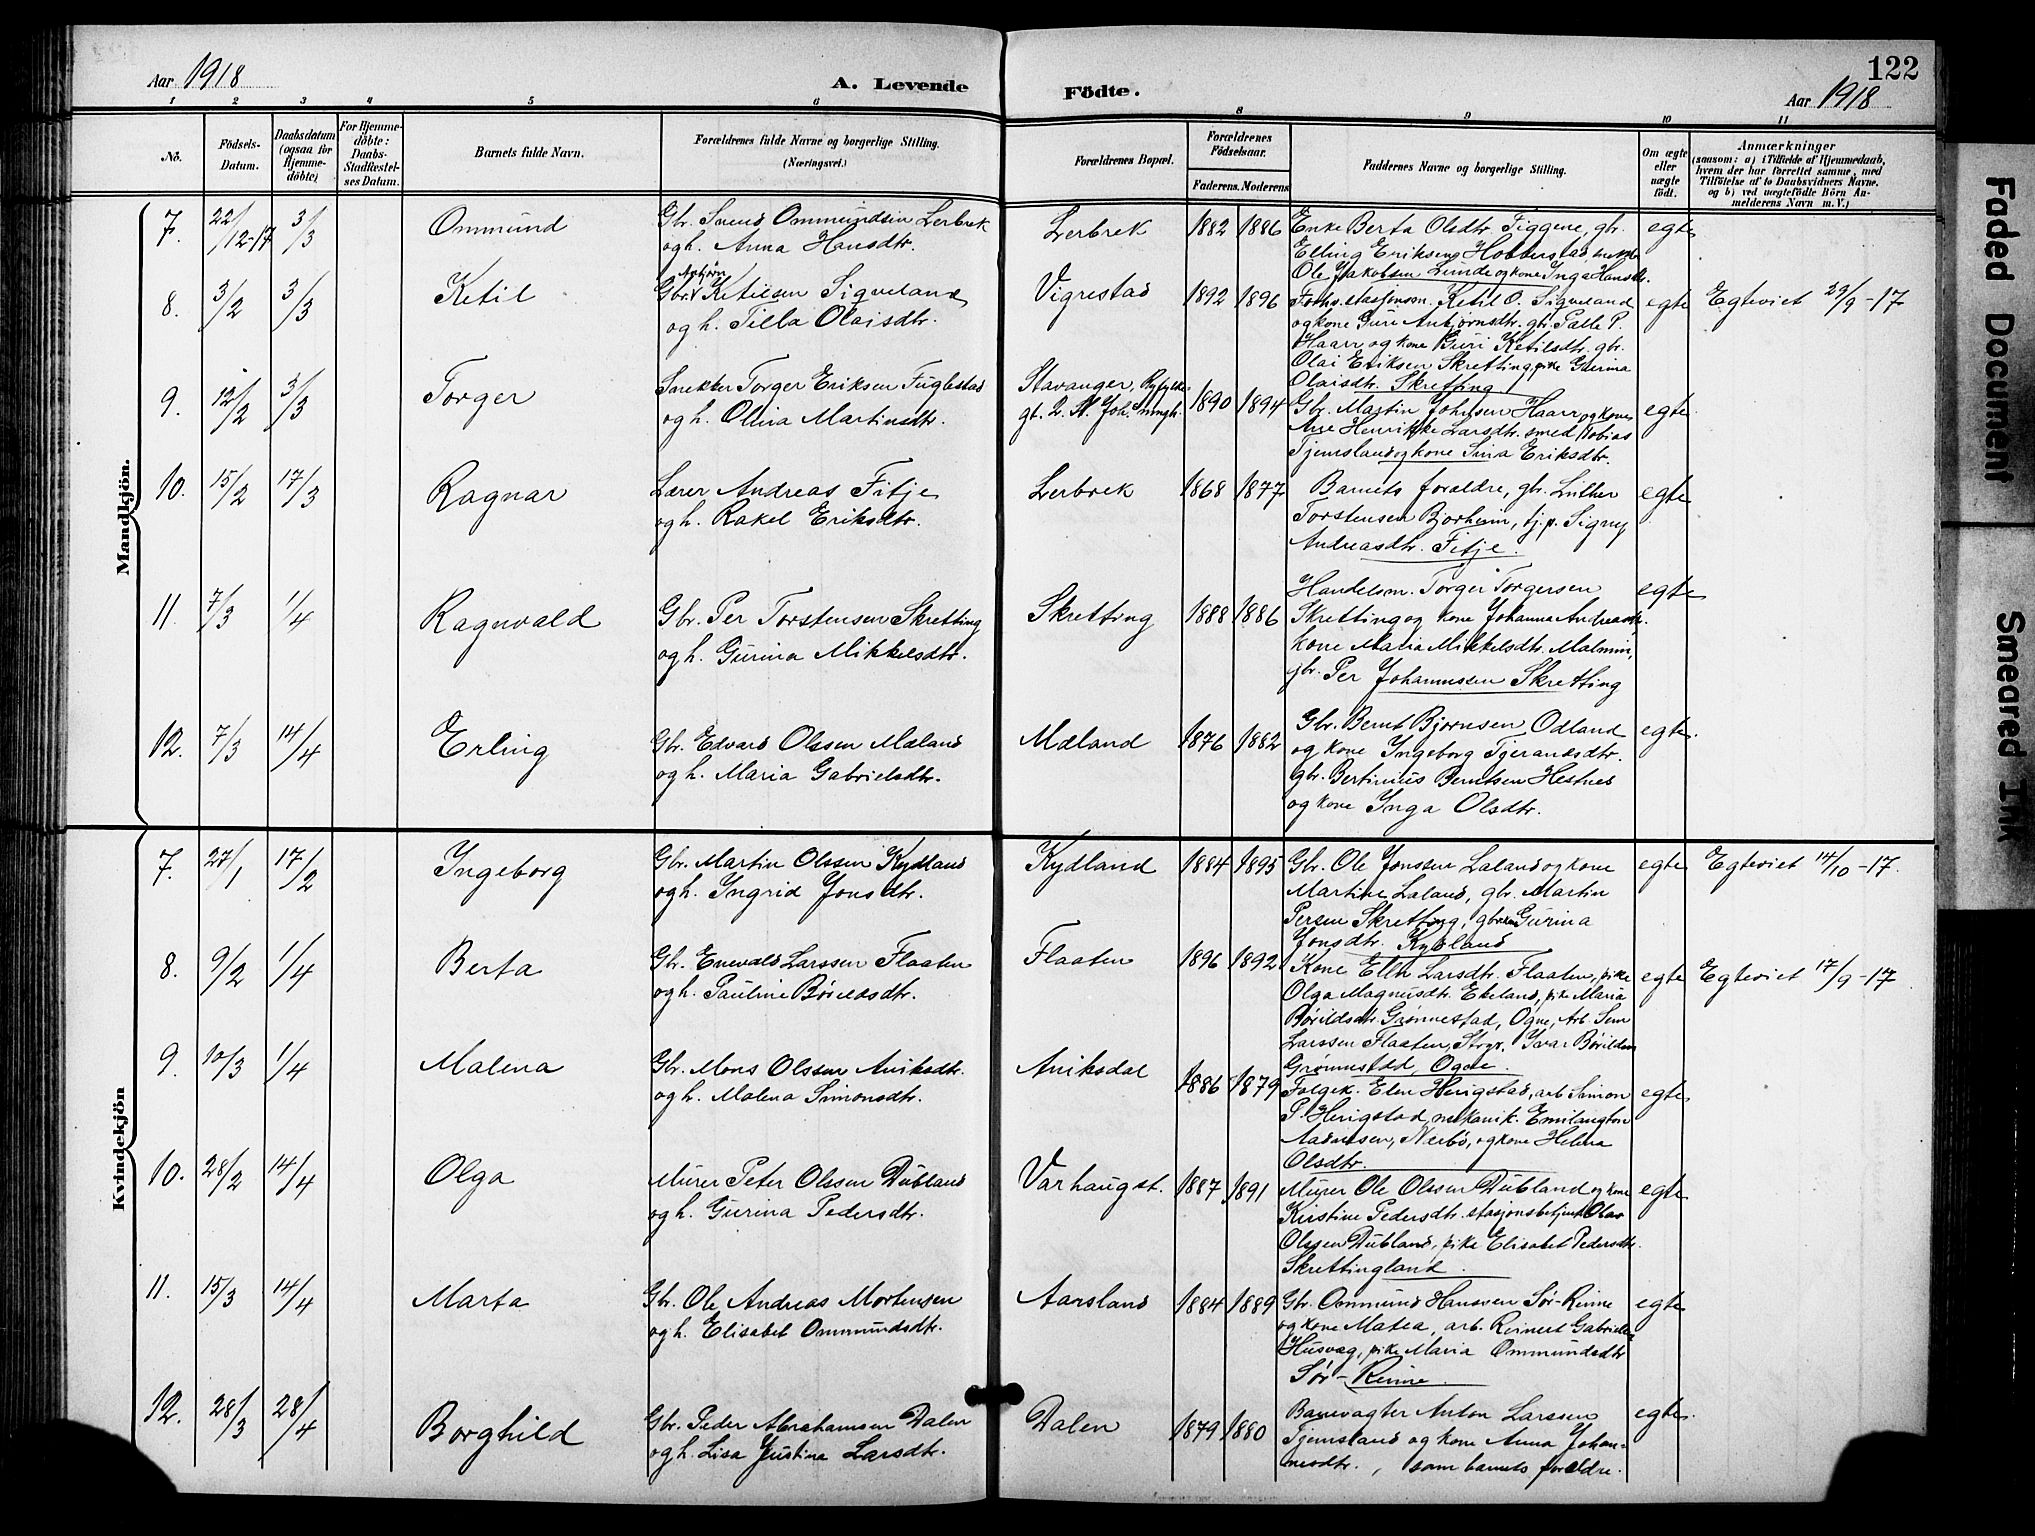 122
Aar 1918
A. Levende
Födte.
Aar 1918
1 2 3 4 5 6 8 9 10 11
No.
Födsels-
Datum.
Daabsdatum
(ogsaa for
Hjemme-
döbte)
For Hjemme-
döbte:
Daabs-
Stadfæstel-
ses Datum.
Barnets fulde Navn.
Forældrenes fulde Navne og borgerlige Stilling.
(Næringsvei.)
Forældrenes Bopæl.
Forældrenes
Födselsaar.
Faderens. Moderens
Faddernes Navne og borgerlige Stilling.
Om ægte
eller
uægte
født.
Anmærkninger
(saasom: a) i Tilfælde af Hjemmedaab,
hvem der har forrettet samme, med
Tilföielse af to Daabsvidners Navne.
og b) ved uægtefödte Börn An-
melderens Navn m. V.)
Mandkjön.
7. 22/12-17 3/3 Ommund
Gbr. Svend Ommundsen Lerbrek
og h. Anna Hansdtr.
Lerbrek 1882 1886
Enke Berta Olsdtr. Tiggene, gbr.
Elling Eriksen Hobberstad,
Ole Jakobsen Lunde og kone Inga Hansdtr.
egte
8. 3/2 3/3 Ketil
Asbjörn
Gbr. Ketilsen Sigveland
og h. Tilla Olaisdtr.
Vigrestad 1892 1896
Forhv. stasjonsm. Ketil O. Sigveland
og kone Guri Asbjørnsdtr. gbr. Palle P.
Haarr og kone Guri Ketilsdtr. gbr.
Olai Eriksen Skretting, pike Gurina
Olaisdtr. Skretting
egte Egteviet 29/9-17
9. 12/2 3/3 Torger
Snekker Torger Eriksen Fuglestad
og h. Olina Martinsdtr.
Stavanger, Ryfylke-
gt. 2. St. Joh. mngh. 1890 1894
Gbr. Martin Johnsen Haarr og kone
Ane Henrikke Larsdtr. smed Tobias
Tjemsland og kone Sina Eriksdtr.
egte
10. 15/2 17/3 Ragnar
Lærer Andreas Fitje
og h. Rakel Eriksdtr.
Lerbrek 1868 1877
Barnets foraldre, gbr. Luther
Torstensen Bjorheim, tj.p. Signy
Andreasdtr. Fitje.
egte
11. 7/3 1/4 Ragnvald
Gbr. Per Torstensen Skretting
og h. Gurina Mikkelsdtr.
Skretting 1888 1886
Handelsm. Torger Torgersen
Skretting og kone Johanna Andreasdtr.
kone Maria Mikkelsdtr. Malmin,
gbr. Per Johannssen Skretting
egte
12. 7/3 14/4 Erling
Gbr. Edvard Olssen Mæland
og h. Maria Gabrielsdtr.
Mæland 1876 1882
Gbr. Bernt Bjørnsen Odland
og kone Yngeborg Tgerandsdtr.
gbr. Bertinius Berntsen Hestnes
og kone Ynga Olsdtr.
egte.
Kvindekjön
7. 27/1 17/2 Yngeborg
Gbr. Martin Olssen Kydland
og h. Yngrid Jonsdtr.
Kydland 1884 1895
Gbr. Ole Jonssen Laland og kone
Martine Laland, gbr. Martin
Persen Skretting, Gurina
Jonsdtr. Kydland
egte Egteviet 14/10-17.
8. 9/2 1/4 Berta
Gbr. Enevald Larssen Flaaten
og h. Pauline Børildsdtr.
Flaaten 1896 1892
Kone Elen Larsdtr. Flaaten, pike
Olga Magnusdtr. Ekeland, pike Maria
Børildsdtr. Grønnestad, Ogne, Arb. Sem
Larssen Flaaten, Yvar Børildsen
Grønnestad, Ogne.
egte Egteviet 17/9-17
9. 10/3 1/4 Malena
Gbr. Mons Olssen Aniksdal.
og h. Malena Simonsdtr.
Aniksdal 1886 1879
Folgek. Elen Herigstad, arb. Simon
P. Herigstad, mekanik. Emil
Aadnesen, Nerbö, og kone Helena
Olsdtr.
egte
10. 28/2 14/4 Olga
Murer Peter Olssen Dubland
og h. Gurina Pedersdtr.
Varhaugst. 1887 1891
Murer Ole Olssen Dubland og kone
Kristine Pedersdtr. stasjonsbetjent Olav
Olssen Dubland, pike Elisabet Pedersdtr.
Skrettingland.
egte
11. 15/3 14/4 Marta
Gbr. Ole Andreas Mortensen
og h. Elisabet Ommundsdtr.
Aarsland 1884 1889
Gbr. Ommund Hanssen Sör-Reime
og kone Matea, arb. Reinert Gabrielsen
Husvæg, pike Maria Ommundsdtr.
Sör-Reime.
egte
12. 28/3 28/4 Borghild
Gbr. Peder Abrahamsen Dalen
og h. Lisa Justina Larsdtr.
Dalen 1879 1880
Banevagter Anton Larssen
Tjemsland og kone Anna Johan-
nesdtr., som barnets forældre.
egte.
Faded Document
Smeared Ink